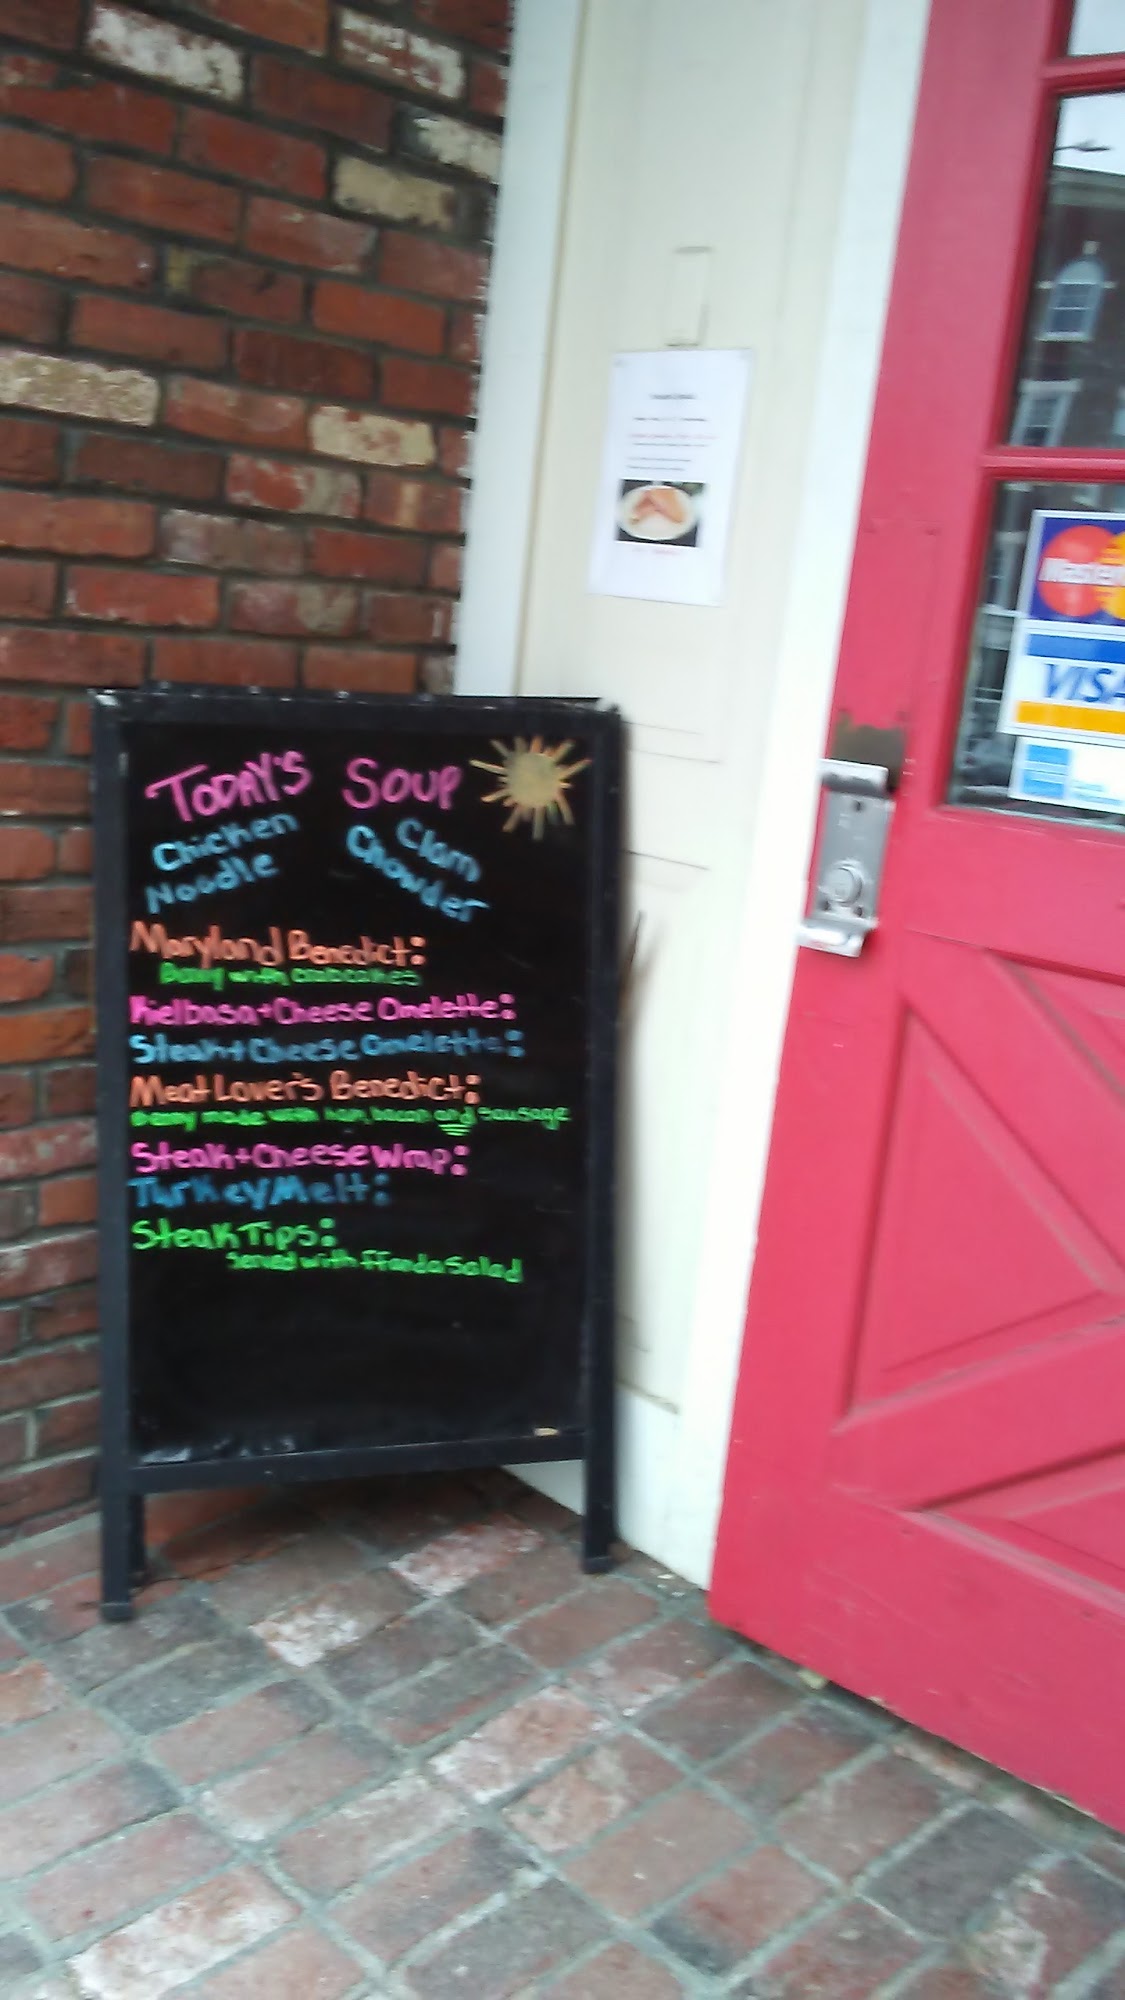 TODAY'S SOUP
Chicken
Noodle
Clam
Chowder
Maryland Benedict:
Benny with crabcakes
Kielbasa + Cheese Omelette:
Steak + Cheese Omelette:
Meat Lover's Benedict:
Benny made with ham, bacon and sausage
Steak + Cheese Wrap:
Turkey Melt:
Steak Tips:
Served with ff and a Salad
VISA